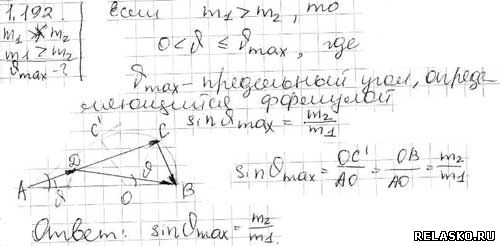 1.192.
m1 > m2
m1 > m2
ϑmax - ?
Если m1 > m2, то
0 < ϑ ≤ ϑmax, где
ϑmax - предельный угол, опреде
ляющийся формулой
sin ϑmax = m2/m1
C'
C
D
ϑ
A
O
B
sin ϑmax = OC'/AO = OB/AO = m2/m1
Ответ: sin ϑmax = m2/m1.
RELASKO.RU